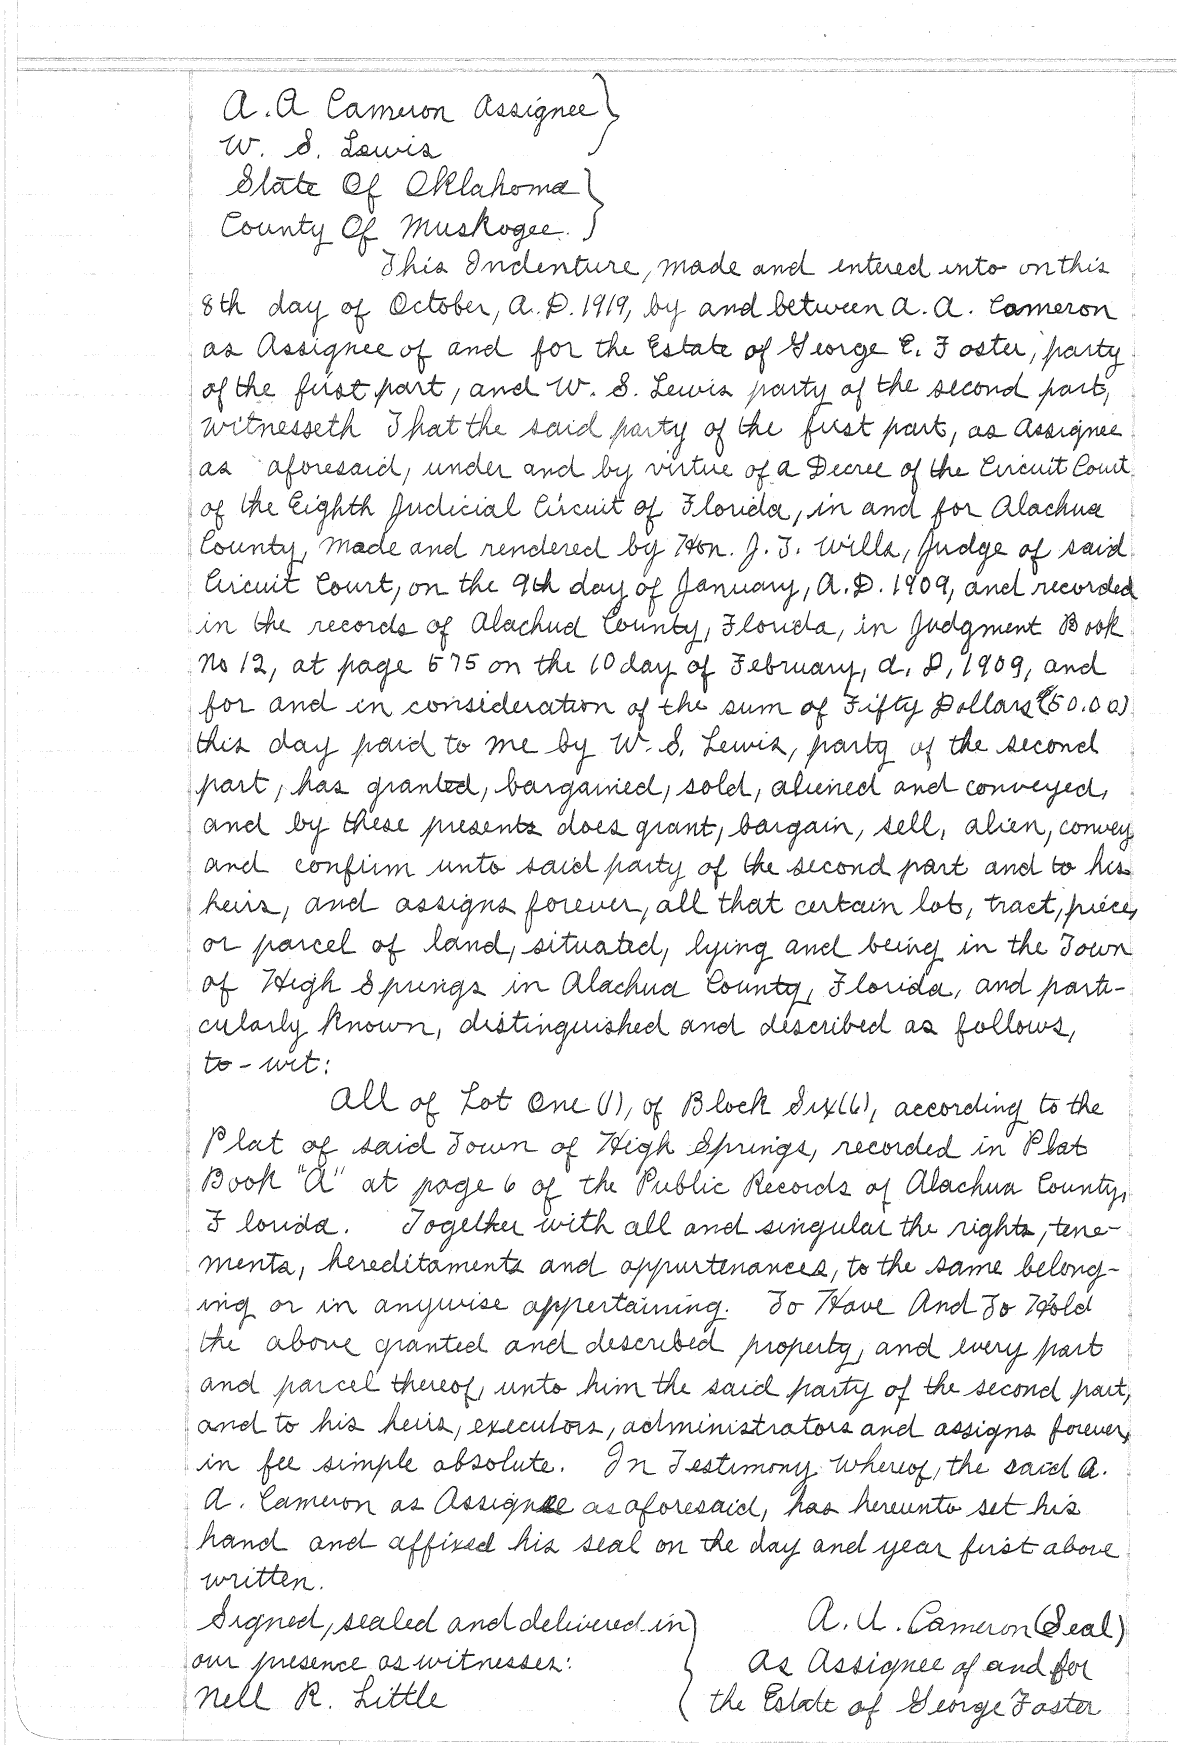 A. A Cameron Assignee
W. S. Lewis
State Of Oklahoma
County Of Muskogee.
This Indenture, made and entered into on this
8th day of October, A. D. 1919, by and between A. A. Cameron
as Assignee of and for the Estate of George E. Foster, party
of the first part, and W. S. Lewis party of the second part,
Witnesseth That the said party of the first part, as Assignee
as aforesaid, under and by virtue of a Decree of the Circuit Court
of the Eighth Judicial Circuit of Florida, in and for Alachua
County, made and rendered by Hon. J. T. Wills, Judge of said
Circuit Court, on the 9th day of January, A. D. 1909, and recorded
in the records of Alachua County, Florida, in Judgment Book
No 12, at page 575 on the 10 day of February, A. D, 1909, and
for and in consideration of the sum of Fifty Dollars (50.00)
this day paid to me by W. S. Lewis, party of the second
part, has granted, bargained, sold, aliened and conveyed,
and by these presents does grant, bargain, sell, alien, convey
and confirm unto said party of the second part and to his
heirs, and assigns forever, all that certain lot, tract, piece,
or parcel of land, situated, lying and being in the Town
of High Springs in Alachua County, Florida, and parti-
cularly known, distinguished and described as follows,
to-wit:
All of Lot One (1), of Block Six (6), according to the
Plat of said Town of High Springs, recorded in Plat
Book "A" at page 6 of the Public Records of Alachua County,
Florida. Together with all and singular the rights, tene-
ments, hereditaments and appurtenances, to the same belong-
ing or in anywise appertaining. To Have And To Hold
the above granted and described property, and every part
and parcel thereof, unto him the said party of the second part,
and to his heirs, executors, administrators and assigns forever,
in fee simple absolute. In Testimony Whereof, the said A.
A. Cameron as Assignee as aforesaid, has hereunto set his
hand and affixed his seal on the day and year first above
written.
Signed, sealed and delivered in
our presence as witnesses:
Nell R. Little
A. A. Cameron (Seal)
As Assignee of and for
the Estate of George Foster